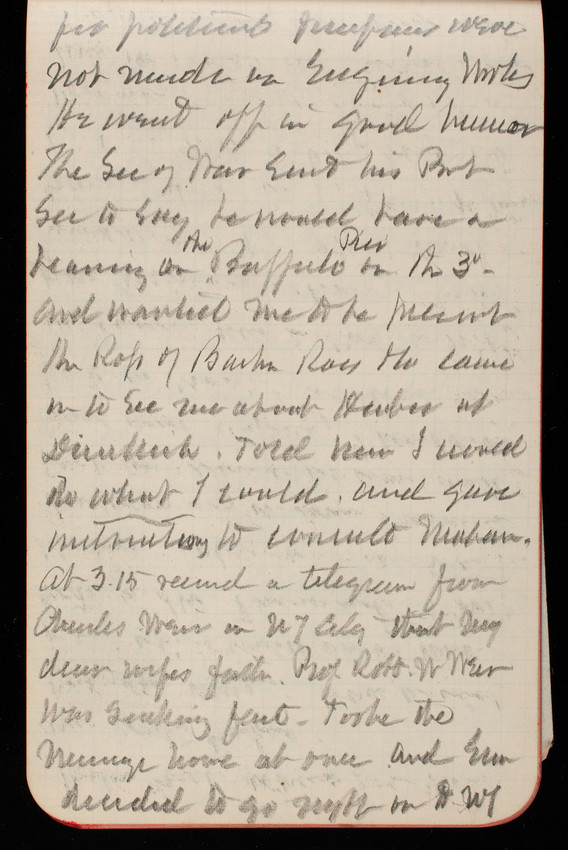 for political purposes were
not made on Engineering Works
He went off in good humor
The Sec of War Sent his Prvt
Sec to Say he would have a
hearing on the Buffalo Pier on the 3d
and wanted me to be present
The Reps of Barber Ross also came
in to See me about Harbor at
. Told him I would
do what I could. and gave
instructions to consult Mahan.
At 3.15 recvd a telegram from
Charles Weir in NY City that my
dear wifes fath. Prof Robt. W Weir
was Sinking fast. Took the
message home at once and Em
decided to go right on to NY